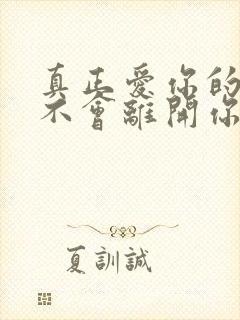 真正愛你的
不會離開你
夏訓誠